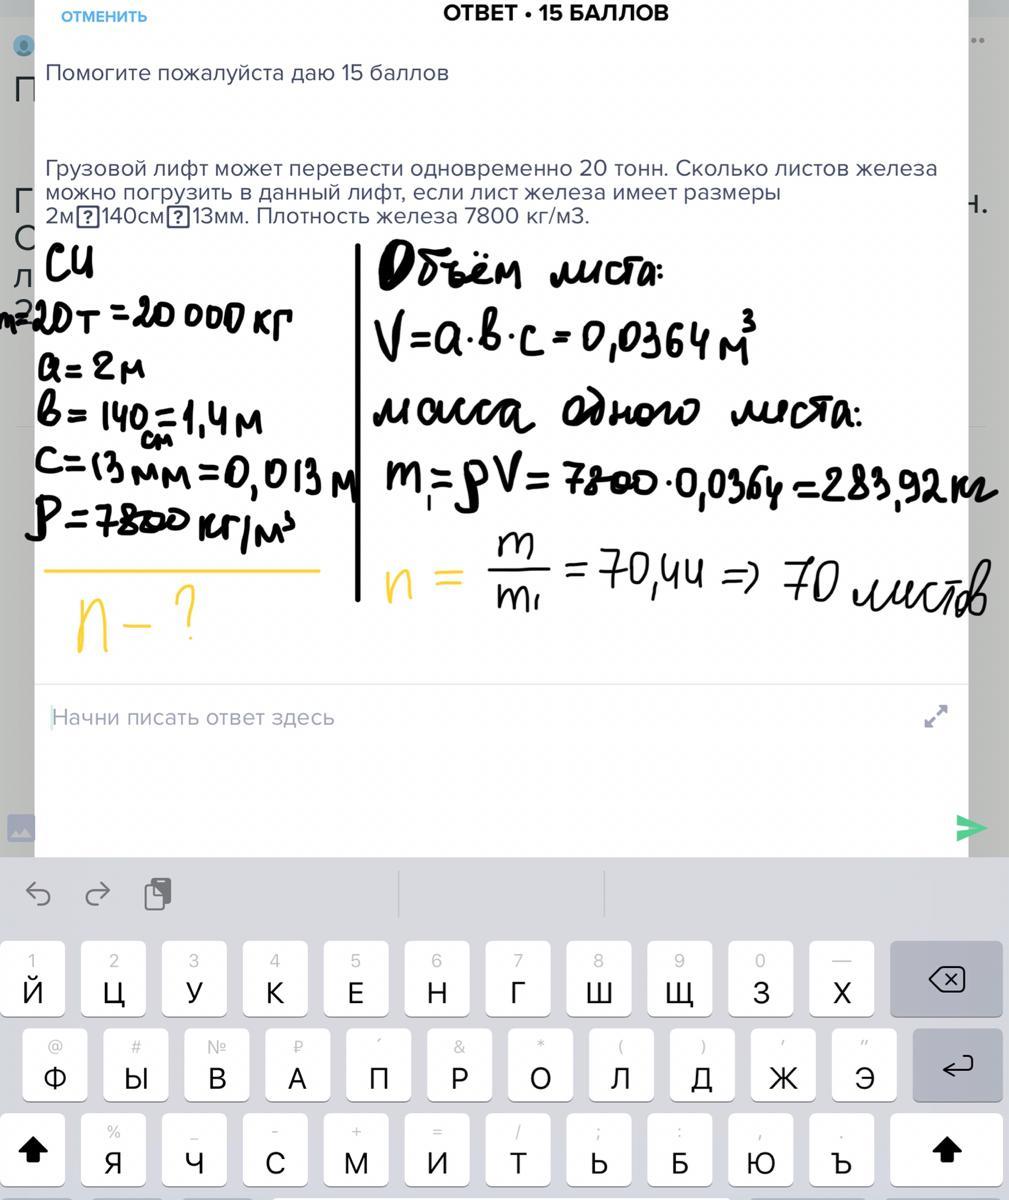 ОТМЕНИТЬ
ОТВЕТ • 15 БАЛЛОВ
Помогите пожалуйста даю 15 баллов
Грузовой лифт может перевести одновременно 20 тонн. Сколько листов железа
можно погрузить в данный лифт, если лист железа имеет размеры
2м⍰140см⍰13мм. Плотность железа 7800 кг/м3.
СИ
m=20т=20 000 кг
a=2м
в=140см=1,4м
c=13мм=0,013м
ρ=7800кг/м³
n-?
Объём листа:
V=a·в·c=0,0364м³
масса одного листа:
m₁=ρV=7800·0,0364=283,92кг
n = m/m₁ = 70,44 => 70 листов
Начни писать ответ здесь
1 2 3 4 5 6 7 8 9 0 —
Й Ц У К Е Н Г Ш Щ З Х
@ # № ₽ ′ & * ( ) ′ ″
Ф Ы В А П Р О Л Д Ж Э
% _ - + = / ; : , .
Я Ч С М И Т Ь Б Ю Ъ